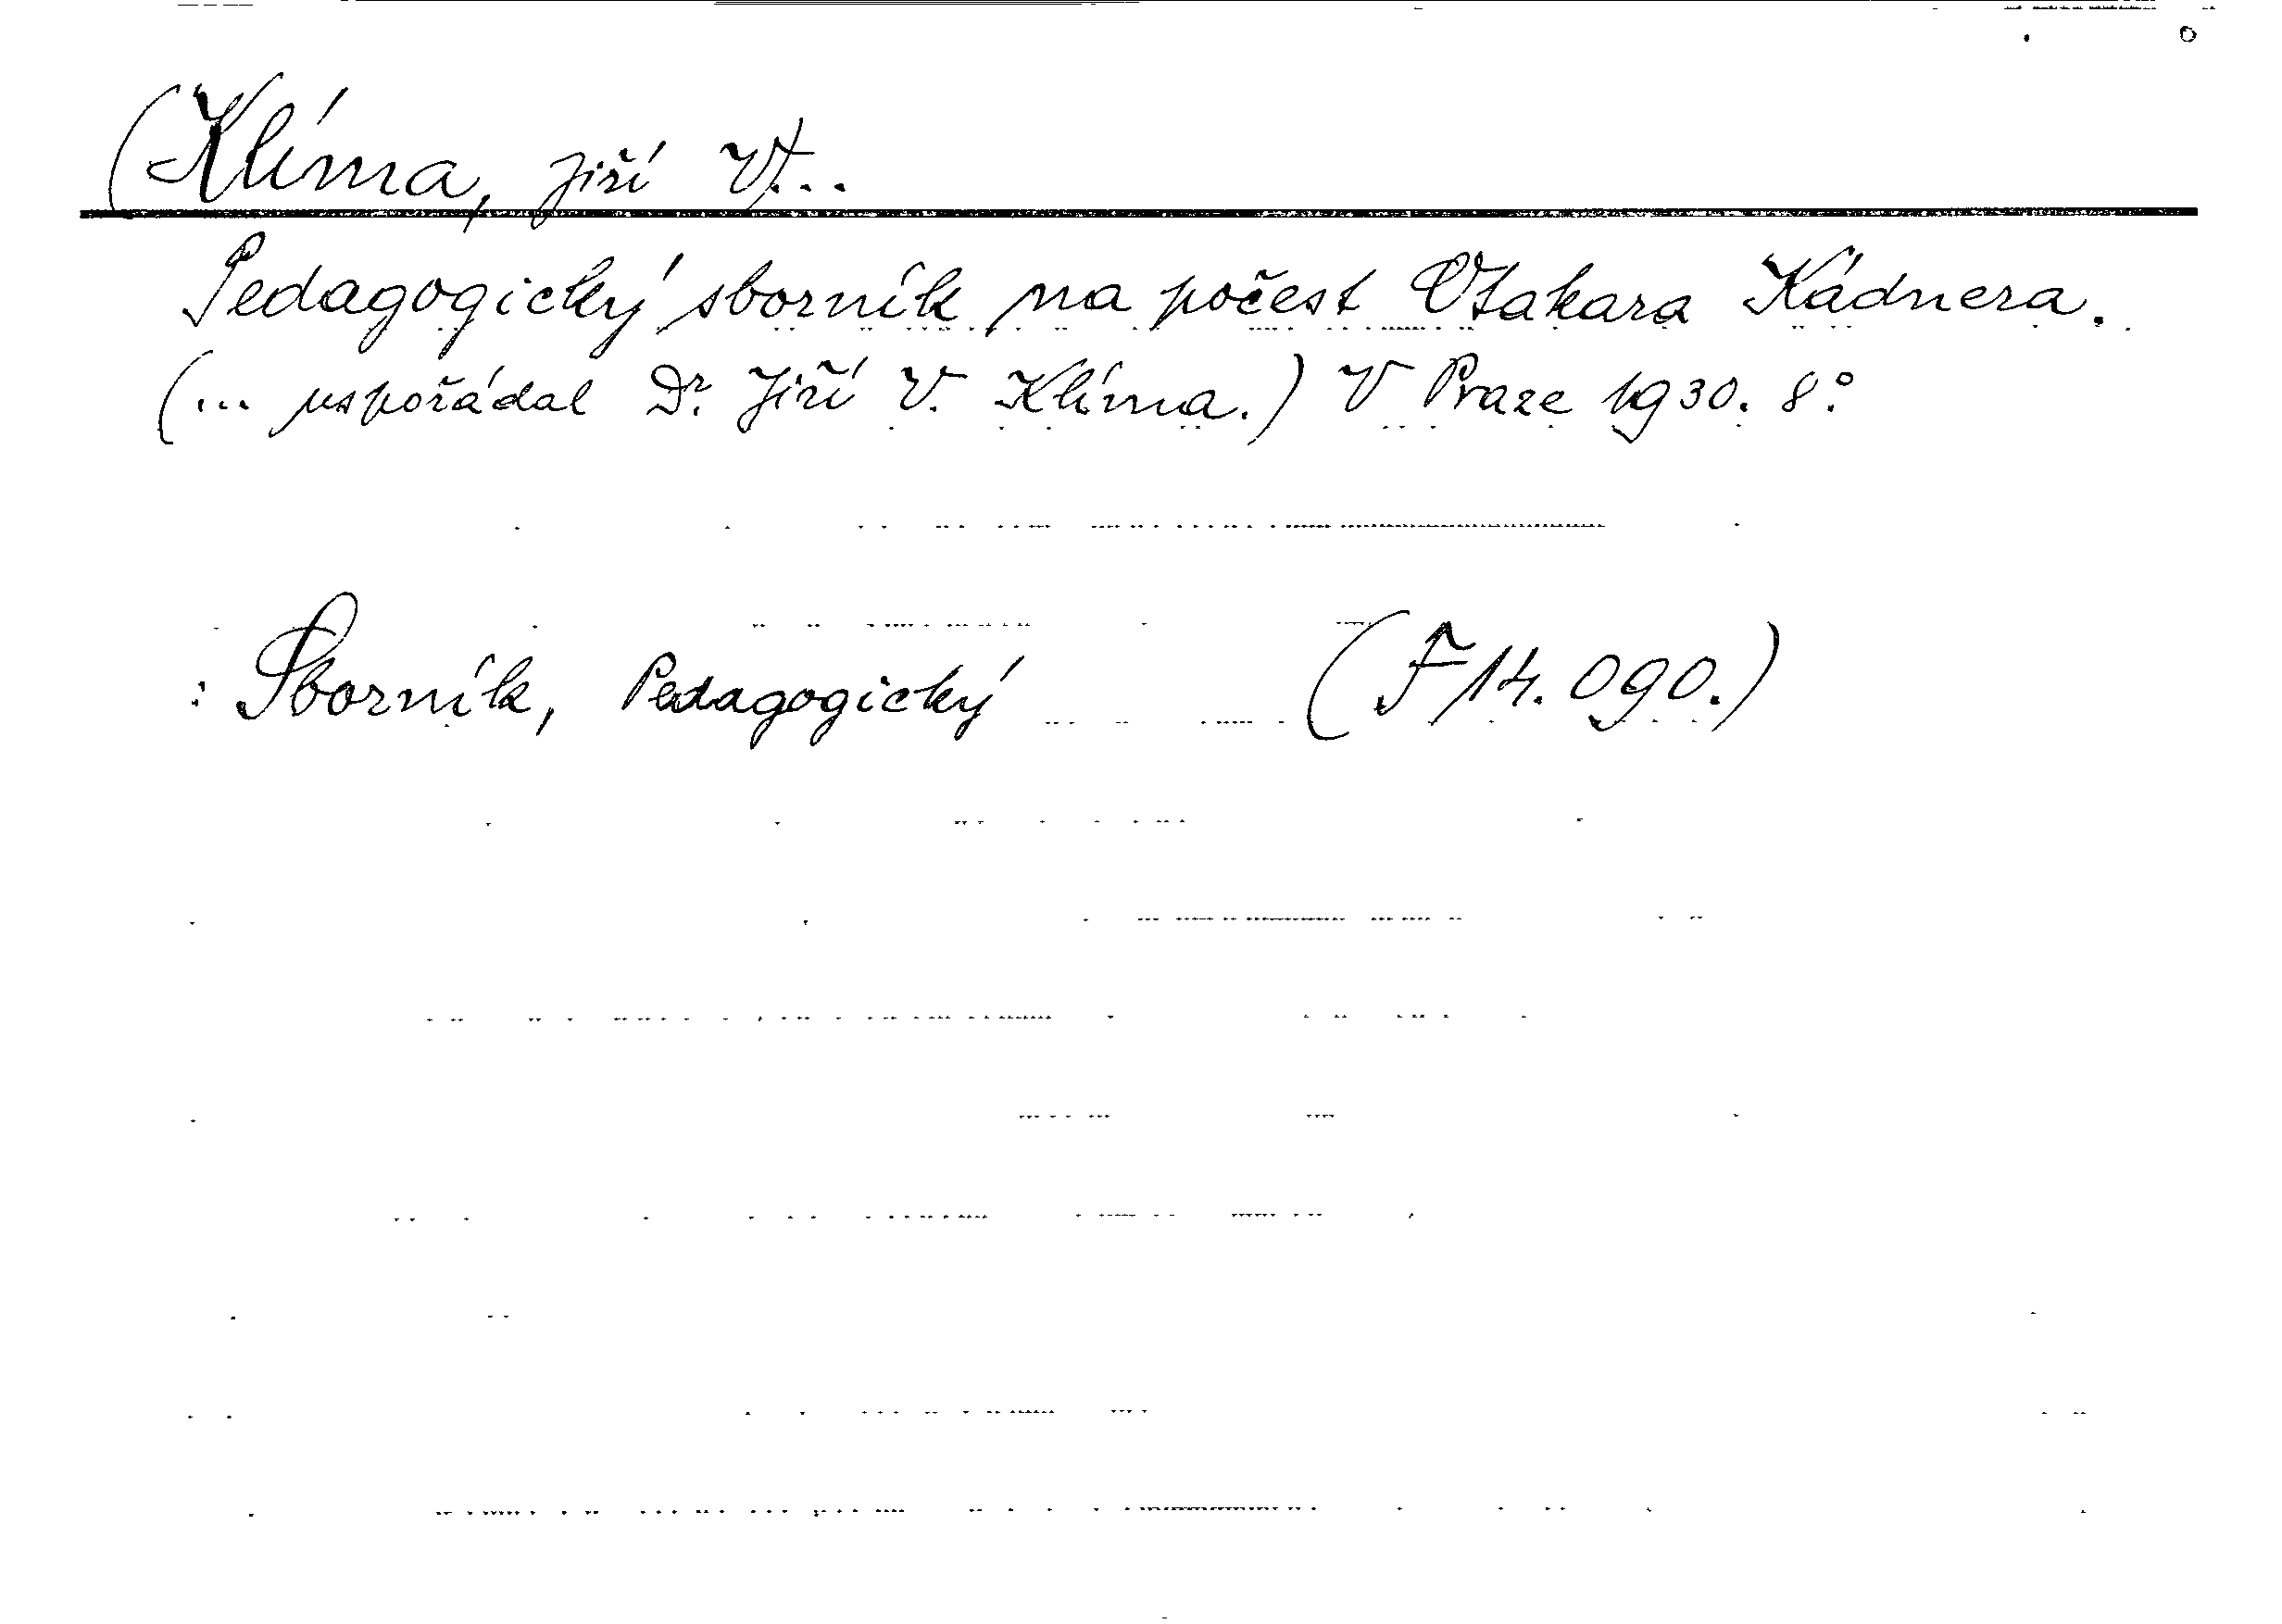 (Klíma, Jiří V)...
Pedagogický sborník na počest Otakara Kádnera.
(... uspořádal Dr. Jiří V. Klíma.) V Praze 1930. 8.°
: Sborník, Pedagogický (F 14.090.)